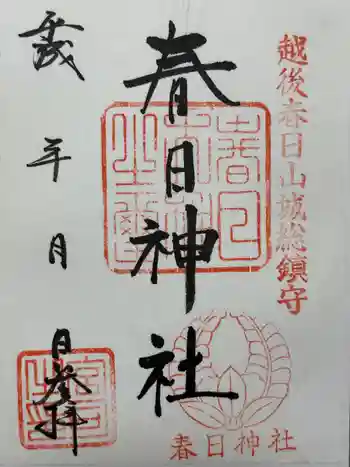 越後春日山城総鎮守
春日神社
春日神社
平成 年 月 日参拝